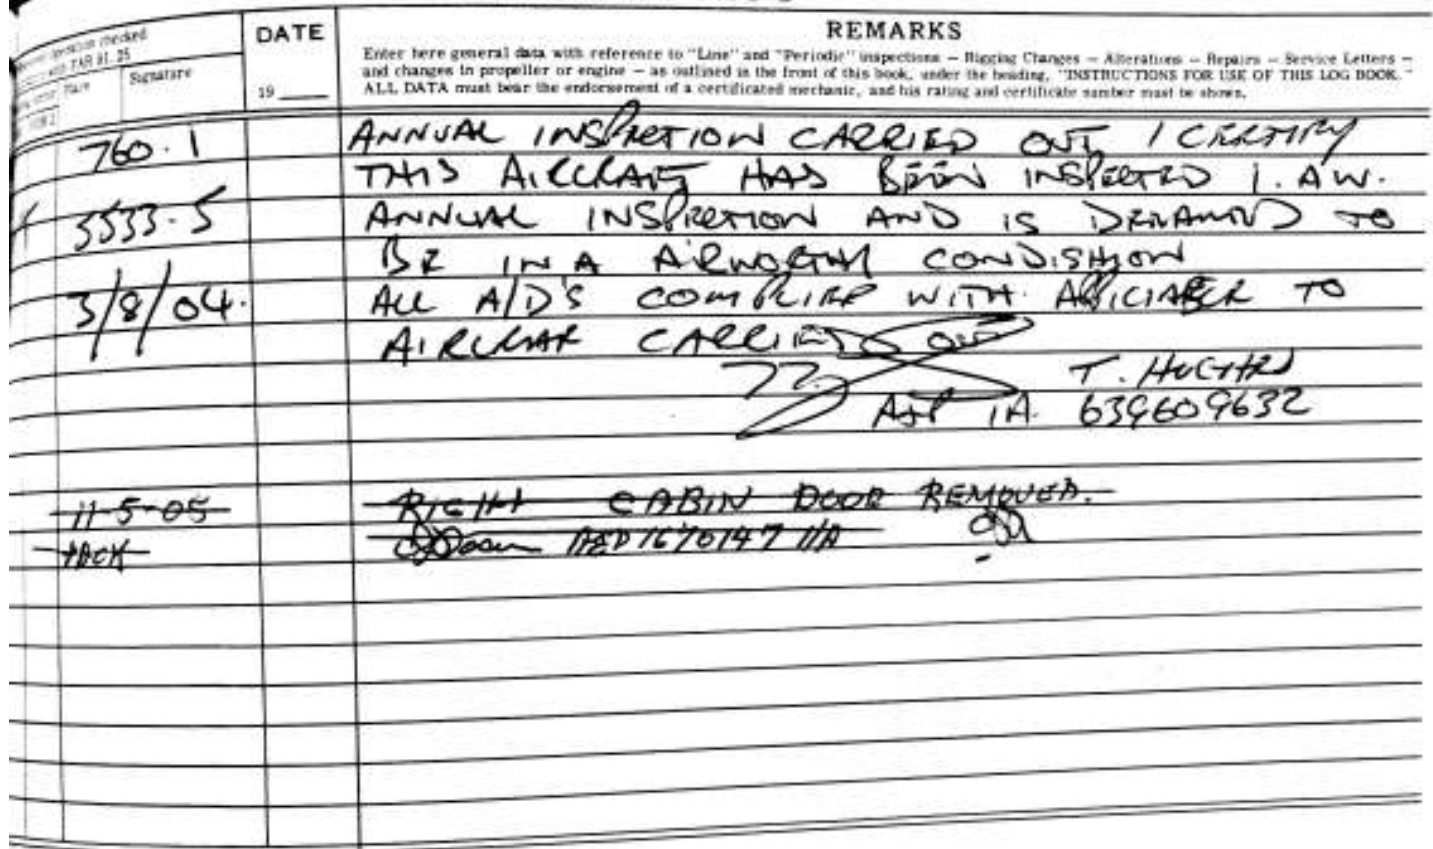 REMARKS
DATE
Enter here general data with reference to "Line" and "Periodic" inspections — Rigging Changes — Alterations — Repairs — Service Letters —
and changes in propeller or engine — as outlined in the front of this book, under the heading, "INSTRUCTIONS FOR USE OF THIS LOG BOOK."
ALL DATA must bear the endorsement of a certificated mechanic, and his rating and certificate number must be shown.
checked
FAR 91.25
Signature
19
760.1 ANNUAL INSPECTION CARRIED OUT I CERTIFY
THIS AIRCRAFT HAS BEEN INSPECTED I.A.W.
3533.5 ANNUAL INSPECTION AND IS DEEMED TO
BE IN A AIRWORTHY CONDISHION
3/8/04. ALL A/D'S COMPLIED WITH TO
AIRCRAFT CARRIED OUT
T. HUGHES
A&P IA. 639609632
11-5-05 RIGHT CABIN DOOR REMOVED.
TACH A&P 1670147 I/A